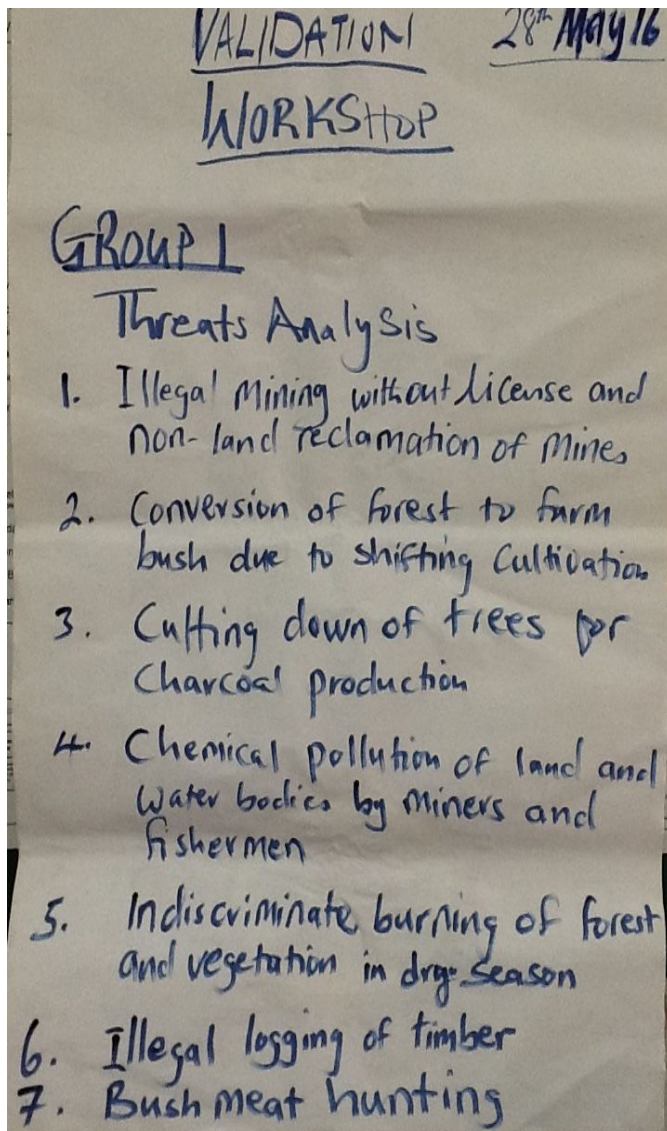 VALIDATION 28th May 16
WORKSHOP
GROUP 1
Threats Analysis
1. Illegal Mining without License and
non-land reclamation of Mines
2. Conversion of forest to farm
bush due to shifting Cultivation
3. Cutting down of trees for
Charcoal production
4. Chemical pollution of land and
Water bodies by Miners and
fishermen
5. Indiscriminate burning of forest
and vegetation in dry season
6. Illegal logging of timber
7. Bush meat hunting